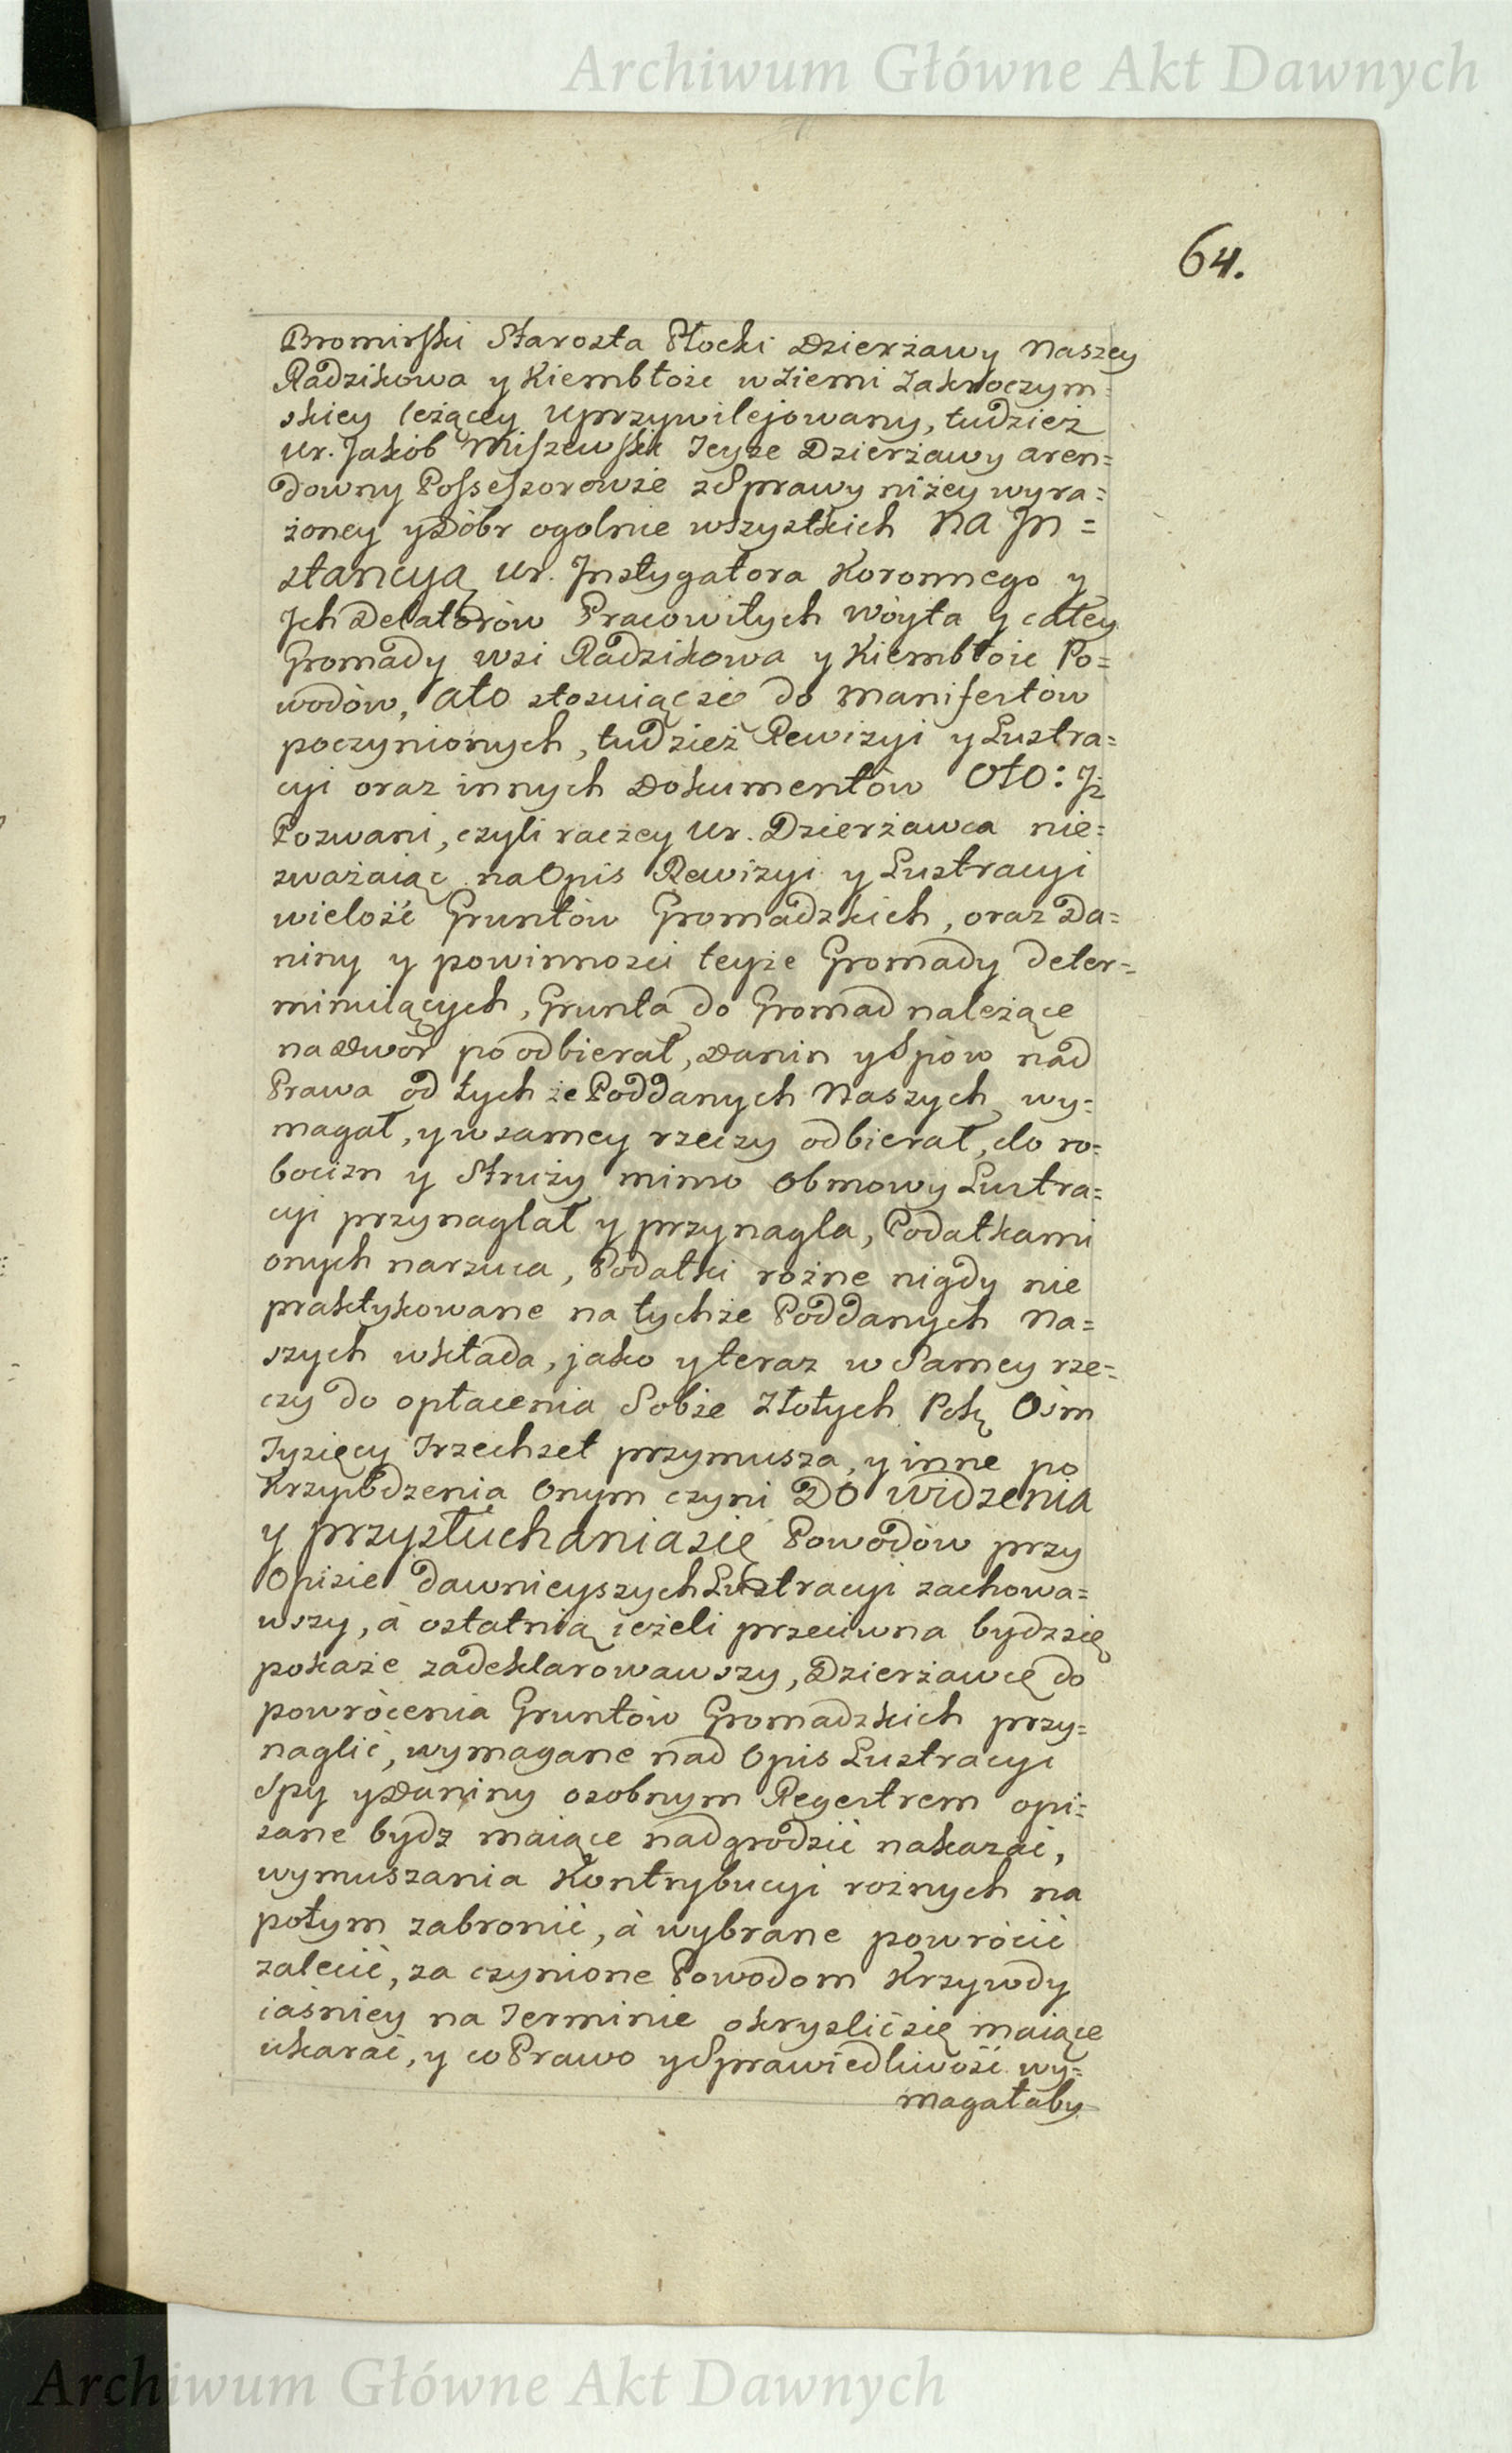 Archiwum Główne Akt Dawnych
64.
Bromirski Starosta Płocki Dzierżawy Naszey
Radzikowa y Kiembłoże w Ziemi Zakroczym=
skiey leżącey uprzywilejowany, tudzież
Ur. Jakób Miszewski Teyże Dzierżawy aren=
downy Possessorowie z Sprawy niżey wyra=
żoney y Dóbr ogolnie wszystkich Na In=
stancyą Ur. Instygatora Koronnego y
Ich Delatorów Pracowitych Woyta y całey
Gromady wsi Radzikowa y Kiembłoże Po=
wodów, Ato stosuiąc sie do Manifestów
poczynionych, tudzież Rewizyi y Lustra=
cyi oraz innych Dokumentów Oto: Iż
Pozwani, czyli raczey Ur. Dzierżawca nie=
zważaiąc na Opis Rewizyi y Lustracyi
wielość Gruntów Gromadzkich, oraz Da=
niny y powinności teyże Gromady deter=
minuiących, Grunta do Gromad należące
na Dwór po odbierał, Danin y Spów nad
Prawa od tych że Poddanych Naszych wy=
magał, y w samey rzeczy odbierał, do ro=
bocizn y Struży mimo Obmowy Lustra=
cyi przynaglał y przynagla, Podatkami
onych narzuca, Podatki rożne nigdy nie
praktykowane na tychże Poddanych Na=
szych wkłada, jako y teraz w Samey rze=
czy do opłacenia Sobie Złotych Polę Ośm
Tysięcy Trzechset przymusza, y inne po
Krzywdzenia Onym czyni Do widzenia
y przysłuchania się Powodów przy
Opisie dawnieyszych Lustracyi zachowa=
wszy, à ostatnią ieżeli przeciwna bydź się
pokaże zadeklarowawszy, Dzierżawcę do
powrócenia Gruntów Gromadzkich przy=
naglić, wymagane nad Opis Lustracyi
Spy y Daniny osobnym Regestrem opi=
sane bydź maiące nadgrodzić nakazać,
wymuszania Kontrybucyi rożnych na
potym zabronić, à wybrane powrócić
zalecić, za czynione Powodom Krzywdy
iaśniey na Terminie okryslić się maiące
ukarać, y co Prawo y Sprawiedliwość wy=
magałaby
Archiwum Główne Akt Dawnych